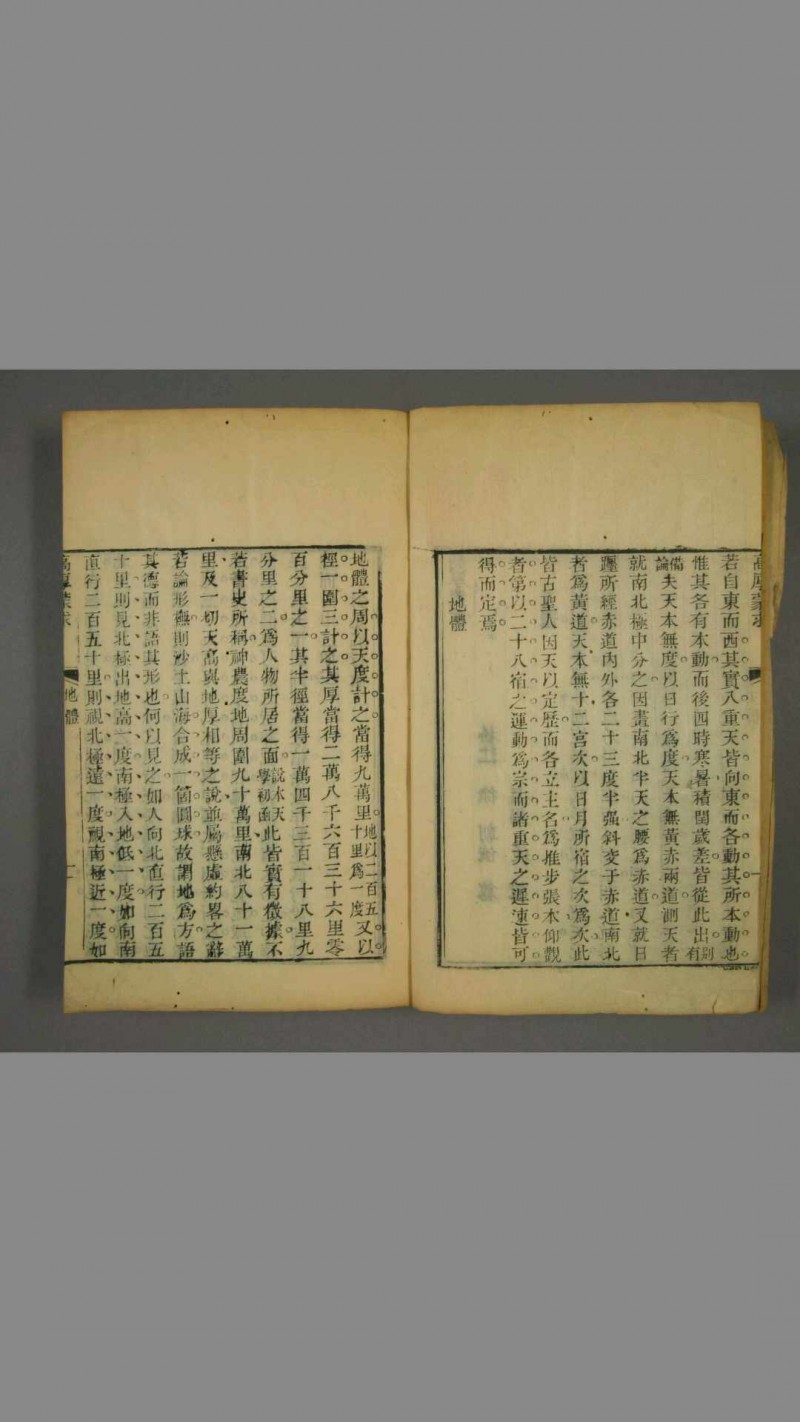 高厚蒙求
若自東而西其實八重天皆向東而各動其所本動也
惟其各有本動而後四時寒暑積閏歲差皆從此出則有
備論夫天本無度以日行爲度天本無黃赤兩道測天者
就南北極中分之因畫南北半天之腰爲赤道又就日
躔所經赤道內外各二十三度半强斜交于赤道南北
者爲黃道天本無十二宮次以日月所宿之次爲次此
皆古聖人因天以定歷而各立主名爲推步張本仰觀
者第以二十八宿之運動爲宗而諸重天之遲速皆可
得而定焉
地體
地體之周以天度計之當得九萬里地以二百五十里爲一度又以
徑一圍三計之其厚當得二萬八千六百三十六里零
百分里之一其半徑當得一萬四千三百一十八里九
分里之二爲人物所居之面說本天學初函此皆實有徵據不
若書史所稱神農度地周圍九十萬里南北八十一萬
里及一切天高與地厚相等之說並屬懸虛約畧之辭
若論形體則沙土山海合成一箇圓球故謂地爲方語
其德而非語其形也何以見之如人向北直行二百五
十里則見北極出地高一度南極入地低一度如向南
直行二百五十里則視北極遠一度視南極近一度如
高厚蒙求
地體